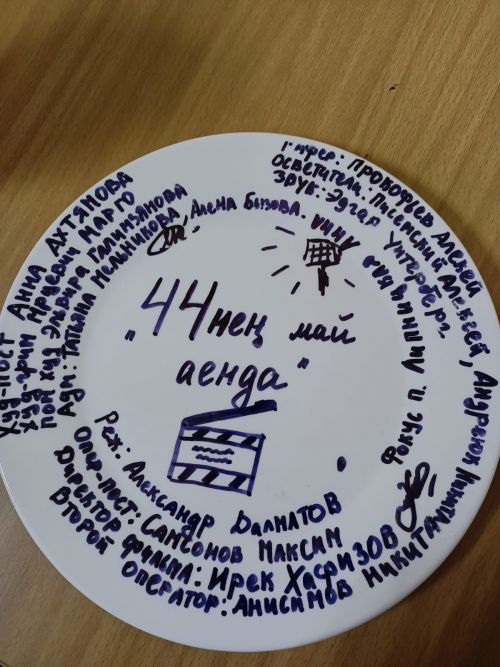 "44нең май
аенда"
Худ-пост Анна Ахтянова
Худ-грим Марго
пом худ Эльвира Галимзянова
Адм: Татьяна Мельникова, Алена Бызова.
Гафер: Прокофьев Алексей
Осветители: Писемский Алексей, Андрюхин
Звук-Эдгар Унтерберг
Фокус п.
Реж: Александр Далматов
Опер-пост: Самсонов Максим
Директор фильма: Ирек Хафизов
Второй оператор: Анисимов Никита